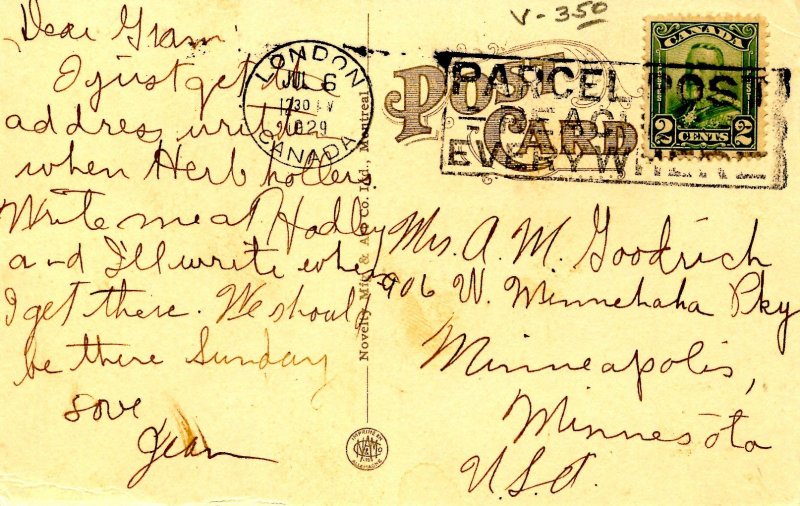 V-350
Dear Gram:
I just get the
address written
when Herb hollers.
Write me at Hadley
and I'll write when
I get there. We should
be there Sunday
Love
Jean
LONDON
JUL 6
1929
CANADA
POST
CARD
PARCEL POST
EVERYWHERE
CANADA
2 CENTS 2
Mrs. A. M. Goodrich
906 W. Minnehaha Pky
Minneapolis,
Minnesota
U.S.A.
Novelty Mfg. & Art Co. Ltd., Montreal